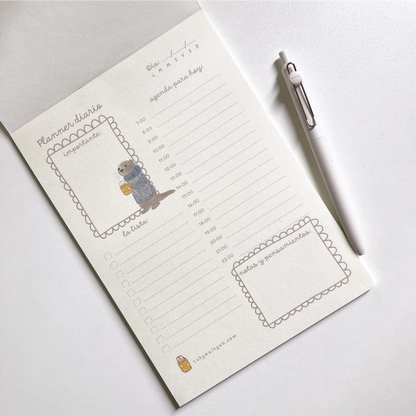 Planner diario
Día: / /
L M M J V S D
Importante:
agenda para hoy:
7:00
8:00
9:00
10:00
11:00
12:00
13:00
14:00
15:00
16:00
17:00
18:00
19:00
20:00
21:00
22:00
la lista:
notas y pensamientos: